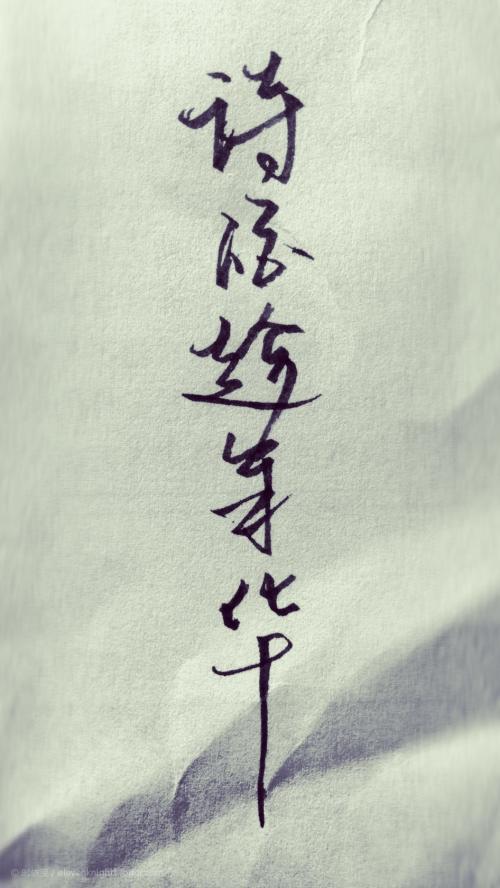 诗酒趁年华